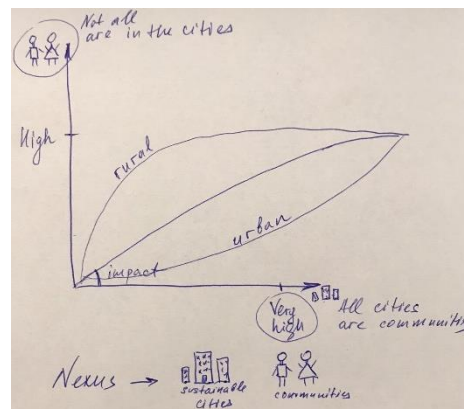 Not all
are in the cities
High
rural
urban
impact
Very
high
All cities
are communiti
Nexus →
sustainable
cities
communities